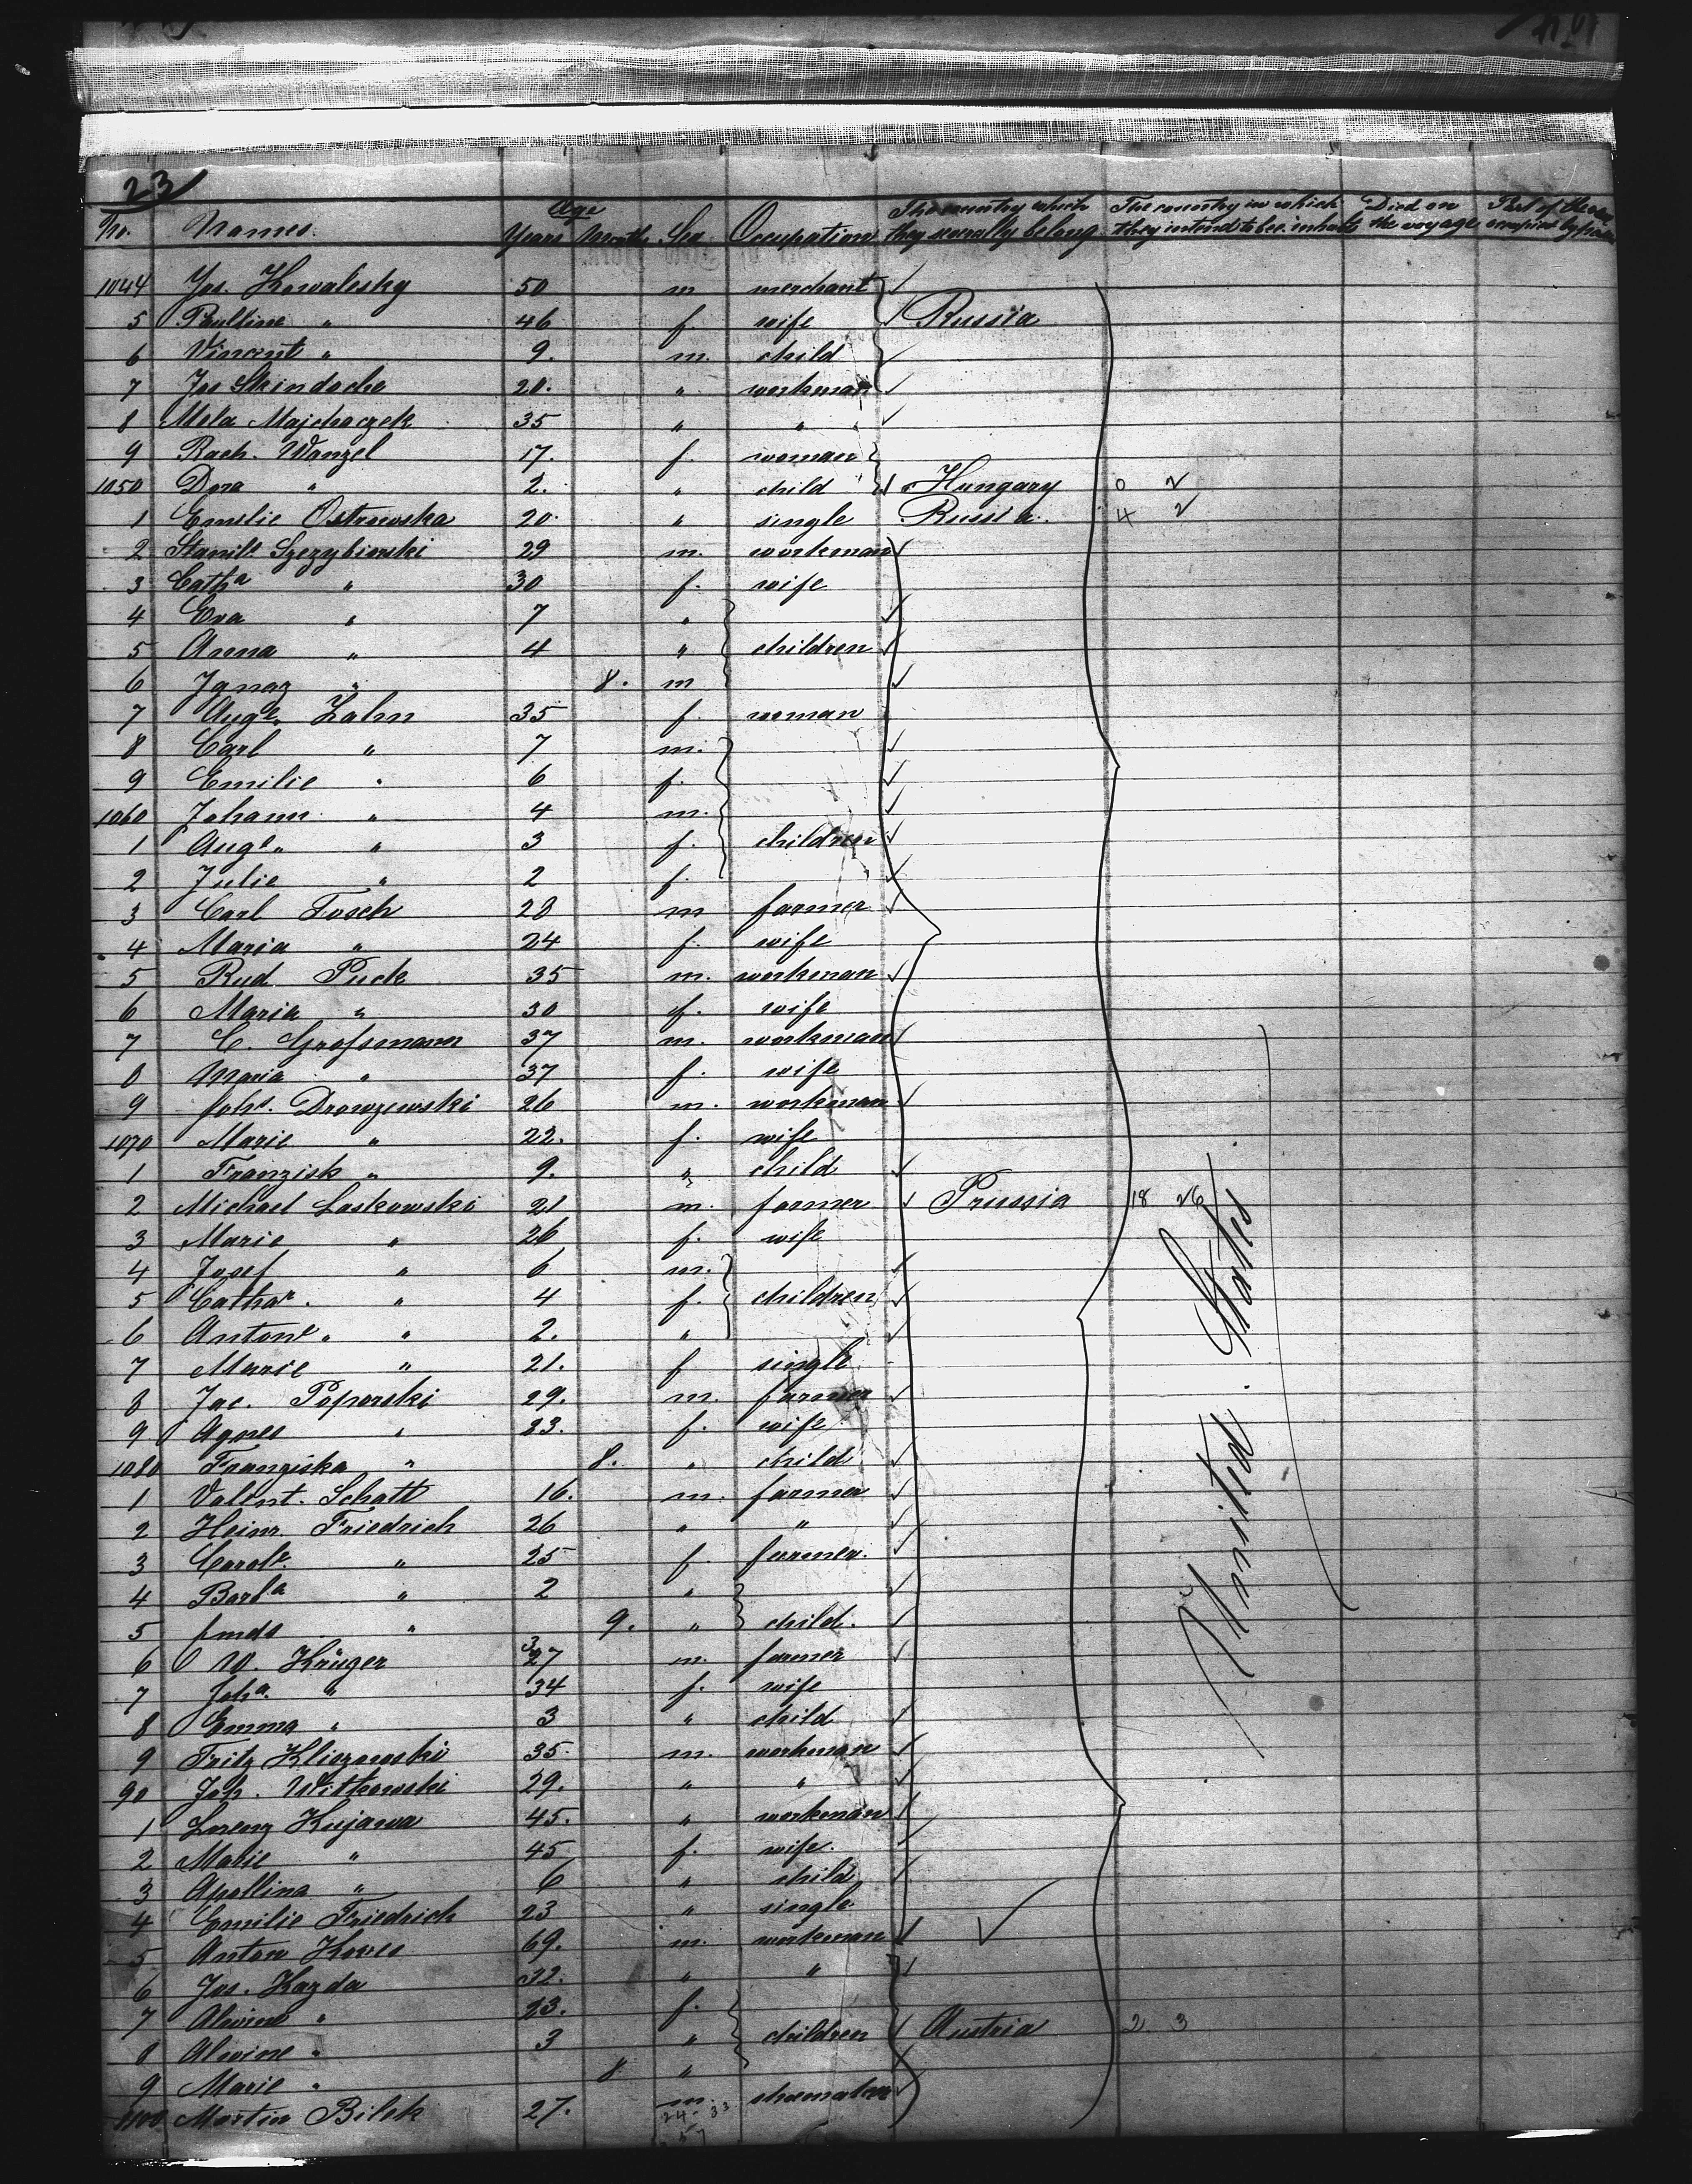 23
No. Names. Age Years Months Sex Occupation The country which they severally belong The country in which they intend to bec. inhabts Died on the voyage Part of the
1044 Jos. Kowalesky 50 m merchant
5 Paulline " 46 f. wife Russia
6 Vincent " 9. m. child
7 Jos 20. " workman
8 Mela 35 " "
9 Rach. Wanzel 17. f. woman
1050 Dora " 2. " child Hungary 0 2
1 Emilie Ostrowska 20. " single Russia. 4 2
2 29 m. workman
3 Catha " 30 f. wife
4 Eva " 7 "
5 Anna " 4 " children
6 Ignaz " 8. m
7 Auge. Zahn 35 f. woman
8 Carl " 7 m.
9 Emilie " 6 f.
1060 Johann " 4 m.
1 Auge. " 3 f. children
2 Julie " 2 f.
3 Carl Tosch 28 m farmer
4 Maria " 24 f. wife
5 Rud. Puck 35 m. workman
6 Maria " 30 f. wife
7 C. Grossmann 37 m. workman
8 Maria " 37 f. wife
9 Johs. Drowzewski 26 m. workman
1070 Marie " 22. f. wife
1 Franzisk " 9. " child
2 Michael Laskowski 21 m. farmer Prussia 18 26
3 Marie " 26 f. wife
4 Josef " 6 m.
5 Cathar. " 4 f. children
6 Antone. " 2. "
7 Marie " 21. f single
8 Jac. Poporski 29. m. farmer
9 Agnes " 23. f. wife
1080 Franziska " 8. " child
1 Valent. Schatt 16. m. farmer
2 Heinr. Friedrich 26 " "
3 Carole. " 25 f. farmer.
4 Barba " 2 "
5 " 9. " child.
6 W. Krüger 37 m. farmer
7 Joha. " 34 f. wife
8 Emma " 3 " child
9 Fritz Kliszewski 35. m. workman
90 Joh. Witkowski 29. " "
1 Lorenz Kujawa 45. " workman
2 Marie " 45 f. wife.
3 Apollina " 6 " child
4 Emilie Friedrich 23 " single
5 Anton 69. m. workman
6 Jos. Kazda 32. " "
7 Alwine " 23. f.
8 Alwine " 3 " children Austria 2 3
9 Marie " 8 "
1100 Martin Bilek 27. m. shoemaker
24 33
57
United States